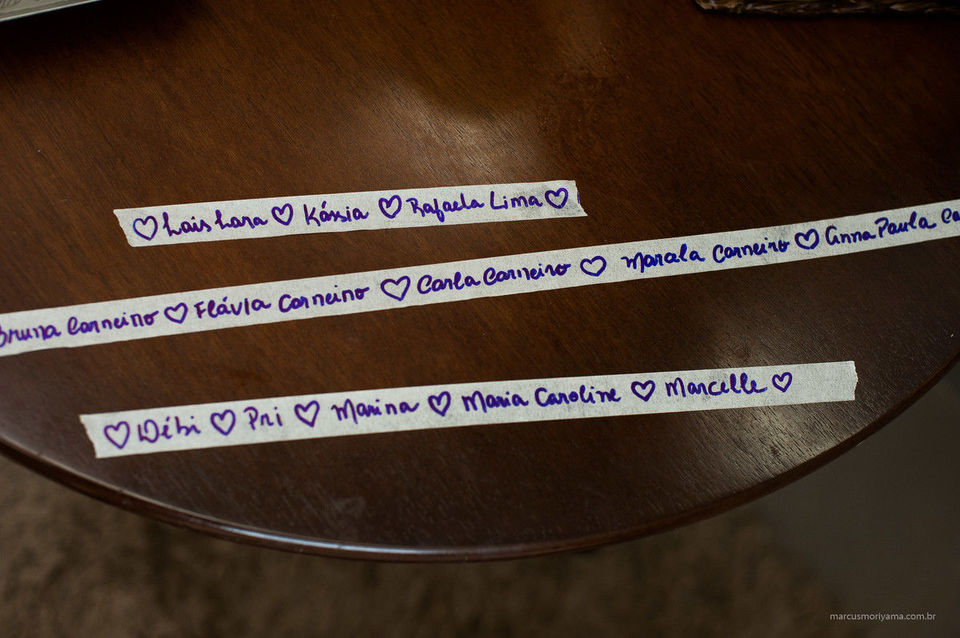 ♡ Lais Lara ♡ Kássia ♡ Rafaela Lima ♡
Bruna Carneiro ♡ Flávia Carneiro ♡ Carla Carneiro ♡ Marala Carneiro ♡ Anna Paula Ca
♡ Débi ♡ Pri ♡ Marina ♡ Maria Caroline ♡ Marcelle ♡
marcusmoriyama.com.br